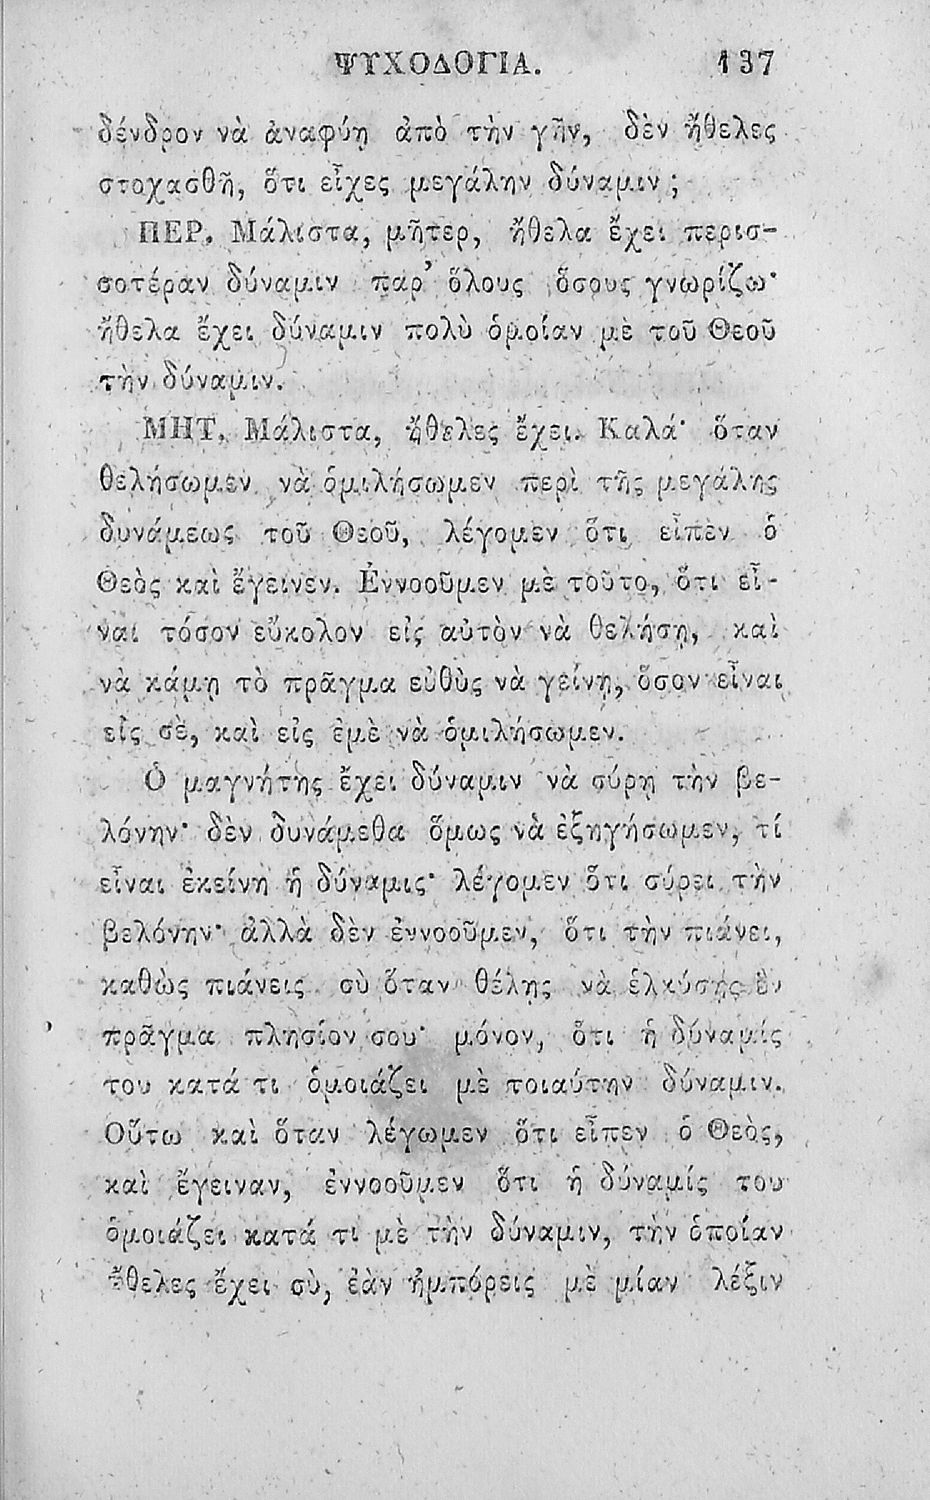 ΨΥΧΟΛΟΓΙΑ. 137
δένδρον νὰ ἀναφύῃ ἀπὸ τὴν γῆν, δὲν ἤθελες
στοχασθῆ, ὅτι εἶχες μεγάλην δύναμιν;
ΠΕΡ. Μάλιστα, μῆτερ, ἤθελα ἔχει περισ-
σοτέραν δύναμιν παρ’ ὅλους ὅσους γνωρίζω·
ἤθελα ἔχει δύναμιν πολὺ ὁμοίαν μὲ τοῦ Θεοῦ
τὴν δύναμιν.
ΜΗΤ. Μάλιστα, ἤθελες ἔχει. Καλά· ὅταν
θελήσωμεν νὰ ὁμιλήσωμεν περὶ τῆς μεγάλης
δυνάμεως τοῦ Θεοῦ, λέγομεν ὅτι εἶπεν ὁ
Θεὸς καὶ ἔγεινεν. Ἐννοοῦμεν μὲ τοῦτο, ὅτι εἶ-
ναι τόσον εὔκολον εἰς αὐτὸν νὰ θελήσῃ, καὶ
νὰ κάμῃ τὸ πρᾶγμα εὐθὺς νὰ γείνῃ, ὅσον εἶναι
εἰς σὲ, καὶ εἰς ἐμὲ νὰ ὁμιλήσωμεν.
Ὁ μαγνήτης ἔχει δύναμιν νὰ σύρῃ τὴν βε-
λόνην· δὲν δυνάμεθα ὅμως νὰ ἐξηγήσωμεν, τί
εἶναι ἐκείνη ἡ δύναμις· λέγομεν ὅτι σύρει τὴν
βελόνην· ἀλλὰ δὲν ἐννοοῦμεν, ὅτι τὴν πιάνει,
καθὼς πιάνεις σὺ ὅταν θέλῃς νὰ ἑλκύσῃς ἓν
πρᾶγμα πλησίον σου· μόνον, ὅτι ἡ δύναμίς
του κατά τι ὁμοιάζει μὲ τοιαύτην δύναμιν.
Οὕτω καὶ ὅταν λέγωμεν ὅτι εἶπεν ὁ Θεὸς,
καὶ ἔγειναν, ἐννοοῦμεν ὅτι ἡ δύναμίς του
ὁμοιάζει κατά τι μὲ τὴν δύναμιν, τὴν ὁποίαν
ἤθελες ἔχει σὺ, ἐὰν ἠμπόρεις μὲ μίαν λέξιν